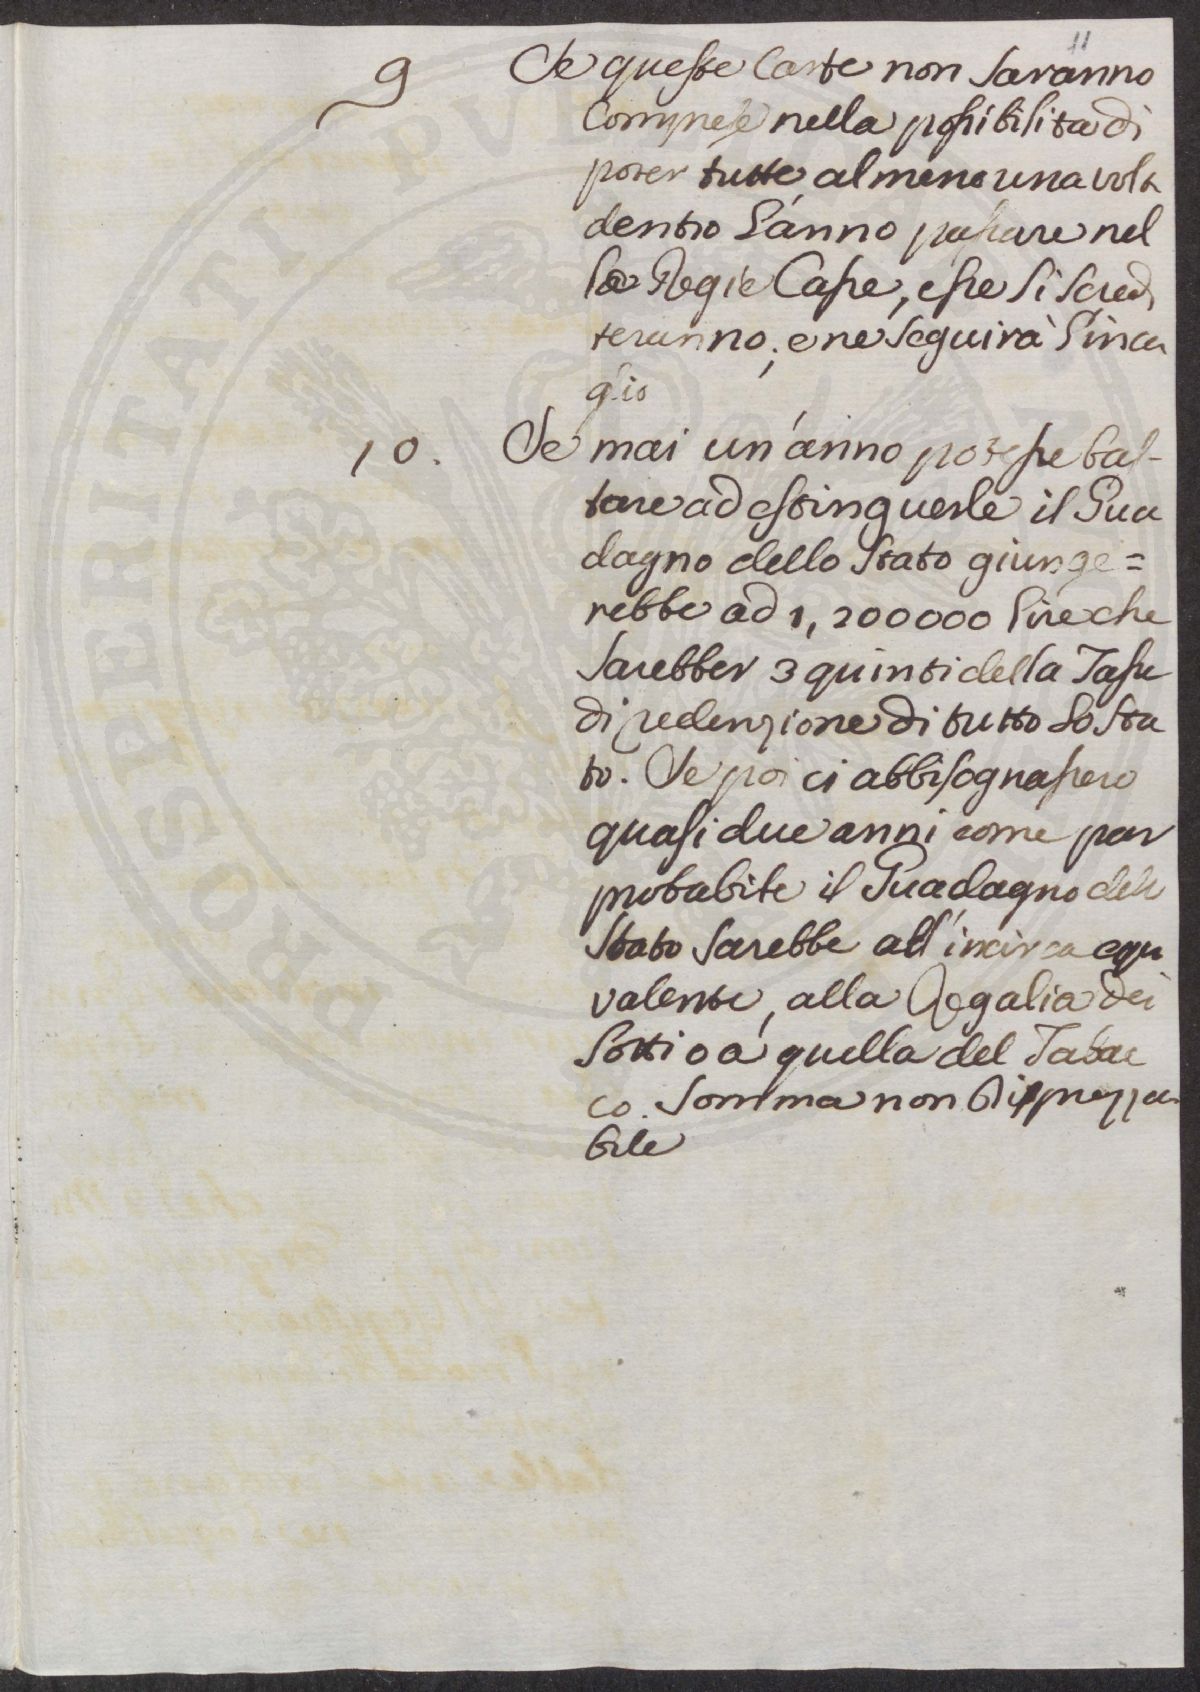 11
9 Se queste Carte non saranno
Comprese nella possibilita di
poter tutte almeno una volt
dentro l'anno passare nel
le Regie Casse, esse si scredi
teranno; e ne seguirà l'inca
glio
10. Se mai un'anno potesse bas-
tare ad estinguerle il Gua
dagno dello Stato giunge=
rebbe ad 1,200000 lire che
sarebber 3 quinti della Tassa
di redenzione di tutto lo Sta
to. Se poi ci abbisognassero
quasi due anni come par
probabile il Guadagno dello
Stato sarebbe all'incirca equi
valente, alla Regalia dei
Lotti o a quella del Tabac
co. Somma non disprezza
bile
PROSPERITATI PUBLICAE